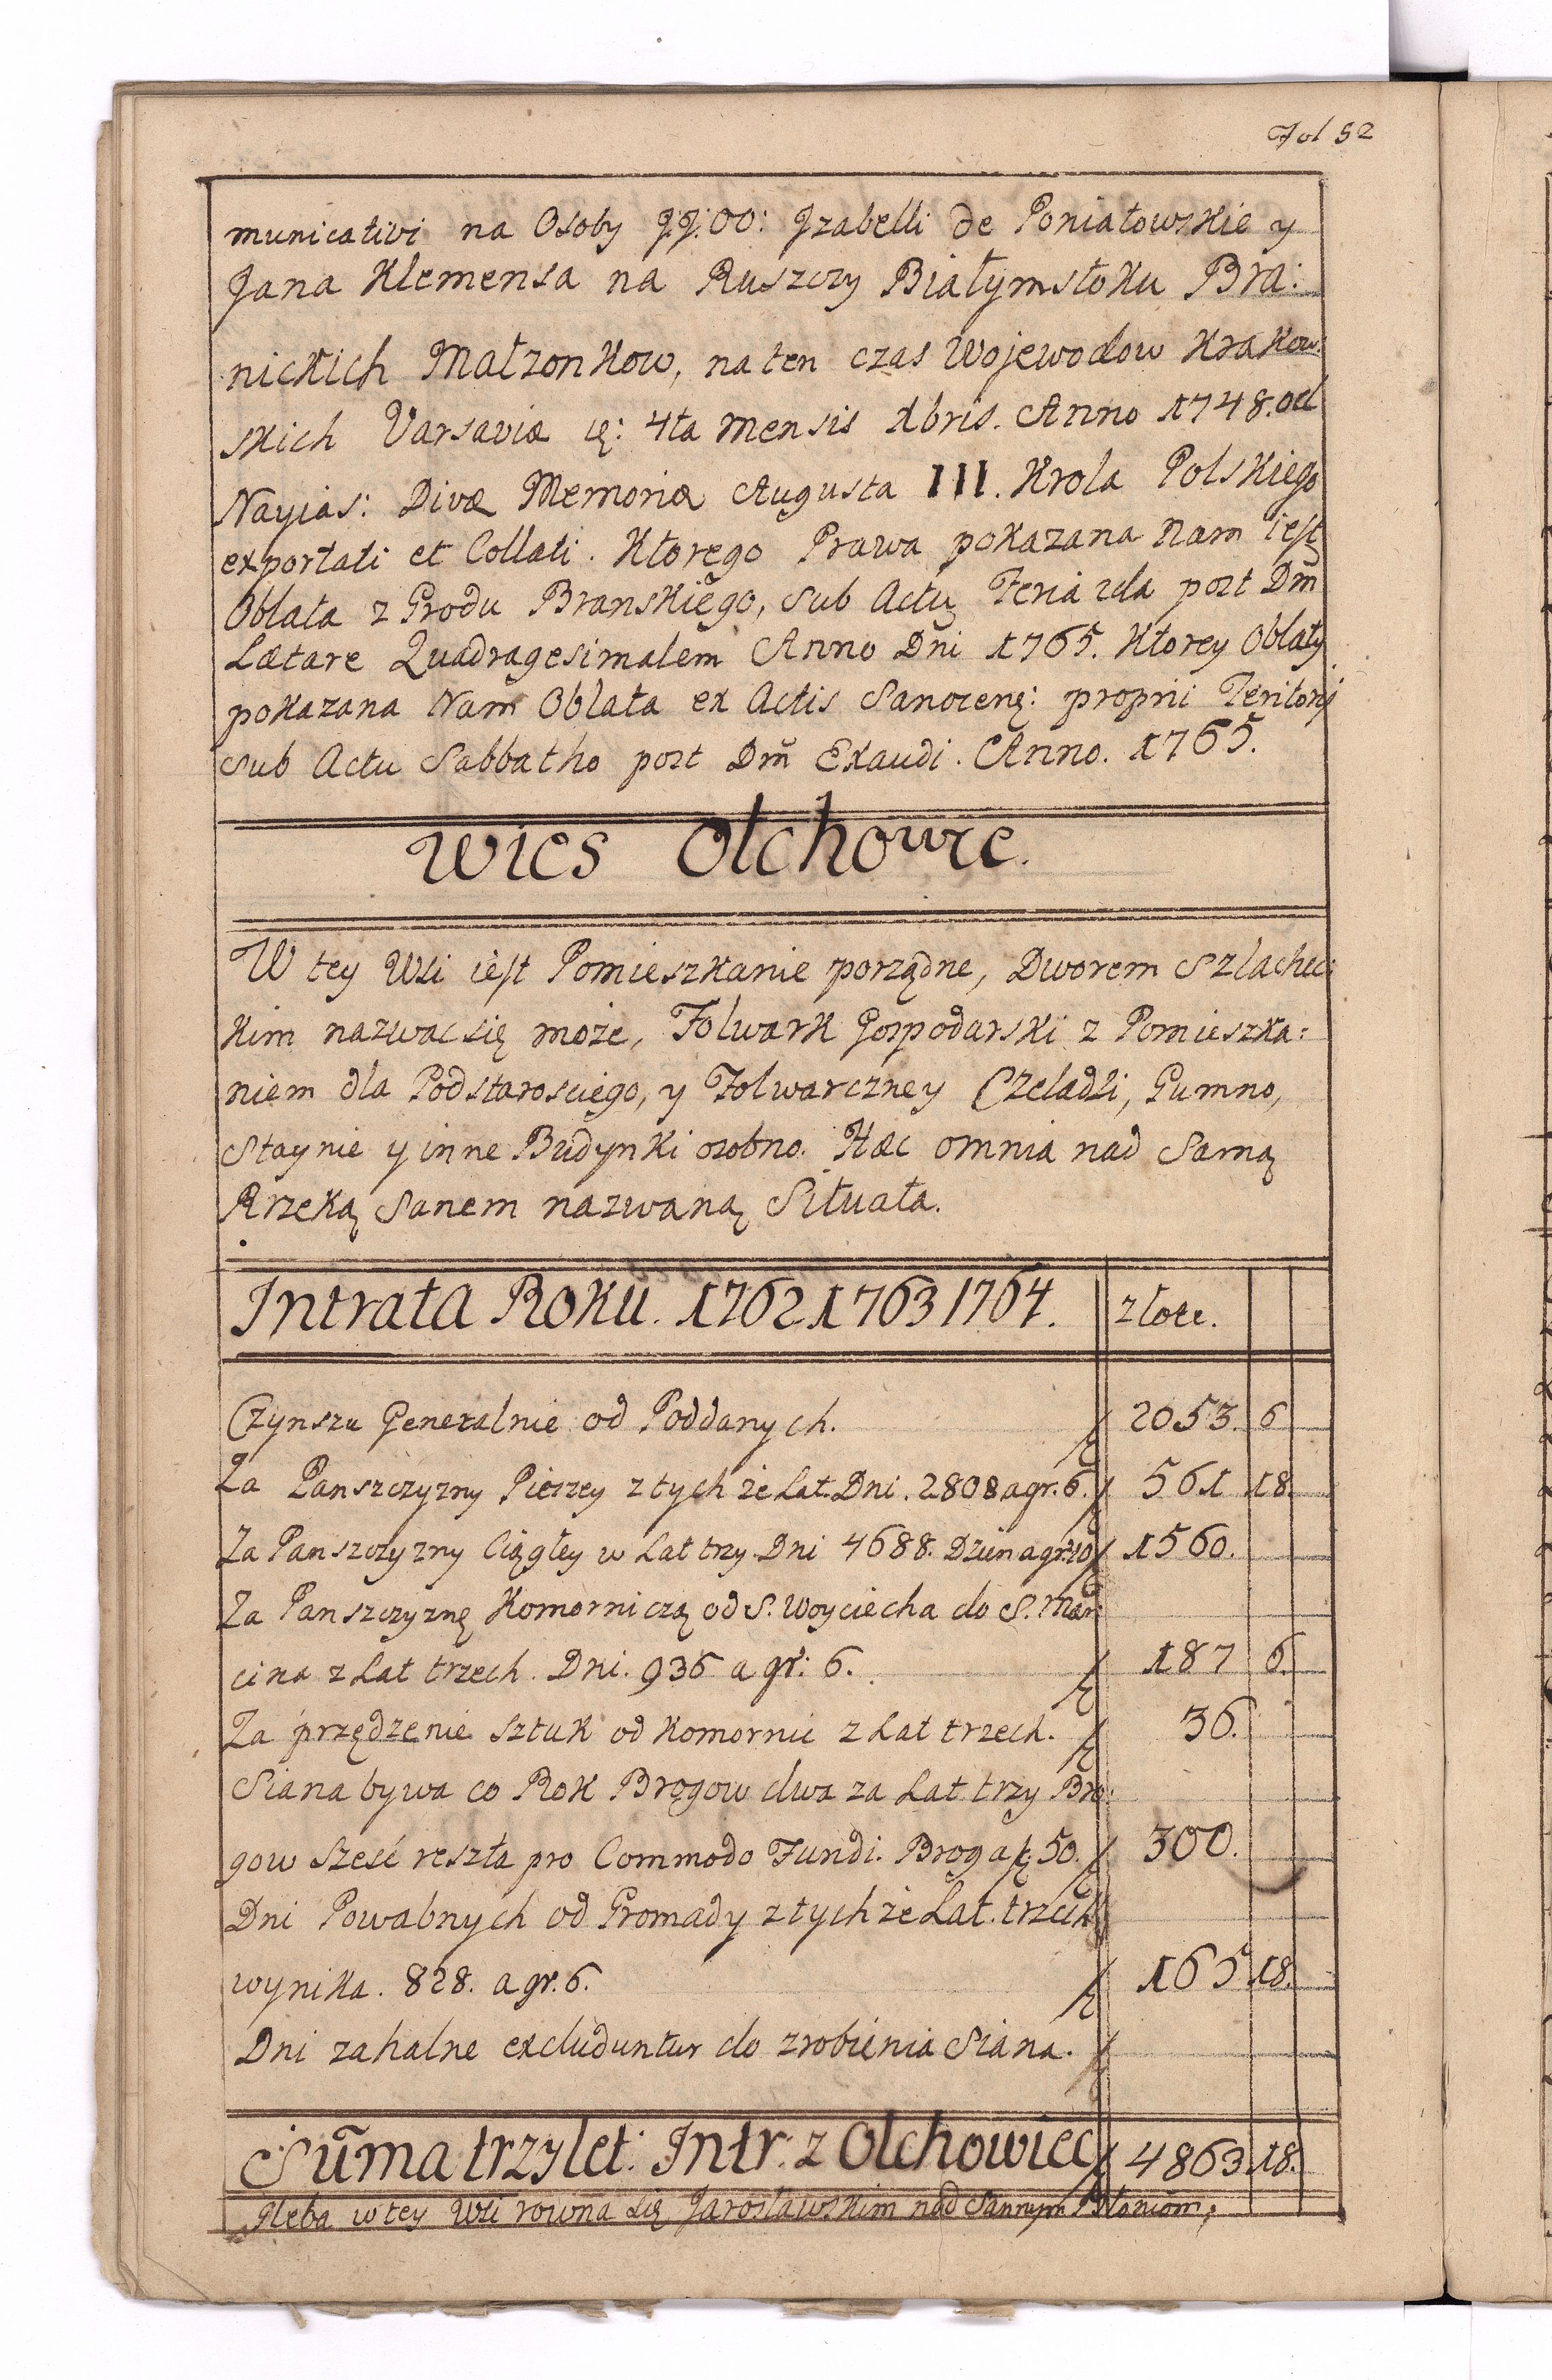 Fol 52
municativi na Osoby JJ.OO: Jzabelli de Poniatowskie y
Jana Klemensa na Ruszczy Białymstoku Bra:
nickich Małzonkow, na ten czas Wojewodow Krakow:
skich Varsaviæ ię: 4ta mensis Xbris. Anno 1748. od
Nayias: Divæ Memoriæ Augusta III. Krola Polskiego
exportati et Collati. Ktorego Prawa pokazana nam iest
Oblata z Grodu Branskiego, sub Actu Feria 2da post Dm̃
Lætare Quadragesimalem Anno Dni 1765. Ktorey Oblaty
pokazana Nam Oblata ex Actis Sanocenę: proprii Teritorij
sub Actu Sabbatho post Dm̃ Exaudi. Anno. 1765.
Wies Olchowce.
W tey Wsi iest Pomieszkanie porządne, Dworem Szlachec:
kim nazwac się może, Folwark Gospodarski z Pomieszka:
niem dla Podstarosciego, y Folwarczney Czeladzi, Gumno,
Staynie y inne Budynki osobno. Hæc omnia nad Samą
Rzeką Sanem nazwaną Situata.
Intrata Roku. 1762 1763 1764. złote.
Czynszu Generalnie od Poddanych. 2053. 6
Za Panszczyzny Pieszey z tychże Lat. Dni. 2808 a gr. 6. 561 18.
Za Panszczyzny Ciągłey w Lat trzy Dni 4688. Dzien a gr: 10 1560.
Za Panszczyznę Komorniczą od S. Woyciecha do S. Mar:
cina z Lat trzech. Dni. 936 a gr: 6. 187 6.
Za przędzenie sztuk od Komornic z Lat trzech. 36.
Siana bywa co Rok Brogow dwa za Lat trzy Bro:
gow sześć reszta pro Commodo Fundi. Brog a f: 50. 300.
Dni Powabnych od Gromady z tychże Lat. trzech
wynika. 828. a gr. 6. 165 18.
Dni zahalne excluduntur do zrobienia Siana.
Sum̃a trzylet: Intr: z Olchowiec 4863 18.
Gleba w tey Wsi rowna się Jarosławskim nad Sannym Błoniom;